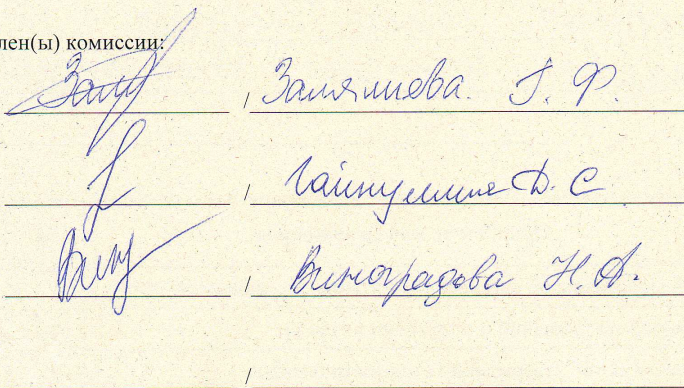 лен(ы) комиссии:
/ Залялиева. Г. Ф.
/ Гайнуллина Д. С
/ Виноградова Н. А.
/